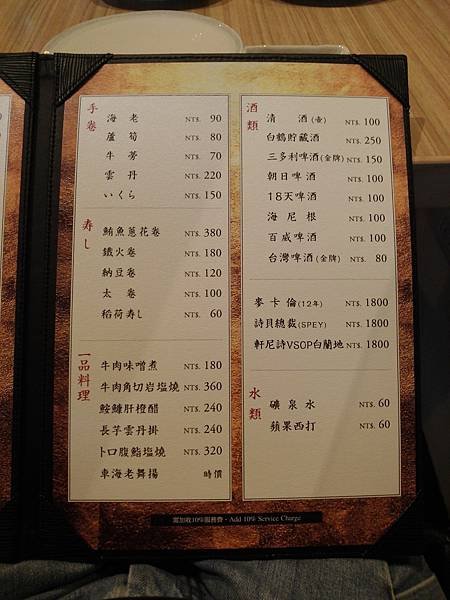 手卷
海老 NT$. 90
蘆筍 NT$. 80
牛蒡 NT$. 70
雲丹 NT$. 220
いくら NT$. 150
寿し
鮪魚蔥花卷 NT$. 380
鐵火卷 NT$. 180
納豆卷 NT$. 120
太卷 NT$. 100
稻荷寿し NT$. 60
一品料理
牛肉味噌煮 NT$. 180
牛肉角切岩塩燒 NT$. 360
鮟鱇肝橙醋 NT$. 240
長芋雲丹掛 NT$. 240
トロ腹鮨塩燒 NT$. 320
車海老舞揚 時價
酒類
清酒(壺) NT$. 100
白鶴貯藏酒 NT$. 250
三多利啤酒(金牌) NT$. 150
朝日啤酒 NT$. 100
18天啤酒 NT$. 100
海尼根 NT$. 100
百威啤酒 NT$. 100
台灣啤酒(金牌) NT$. 80
麥卡倫(12年) NT$. 1800
詩貝總裁(SPEY) NT$. 1800
軒尼詩VSOP白蘭地 NT$. 1800
水類
礦泉水 NT$. 60
蘋果西打 NT$. 60
需加收10%服務費・Add 10% Service Charge